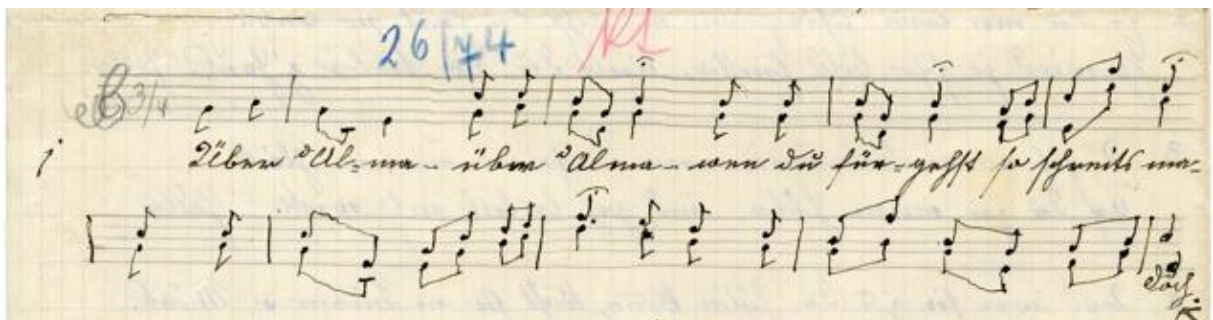 26/74 kt
3/4
1 Über d'Al-ma- über d'Alma- wen du für-gehst so schreits ma-
doch.